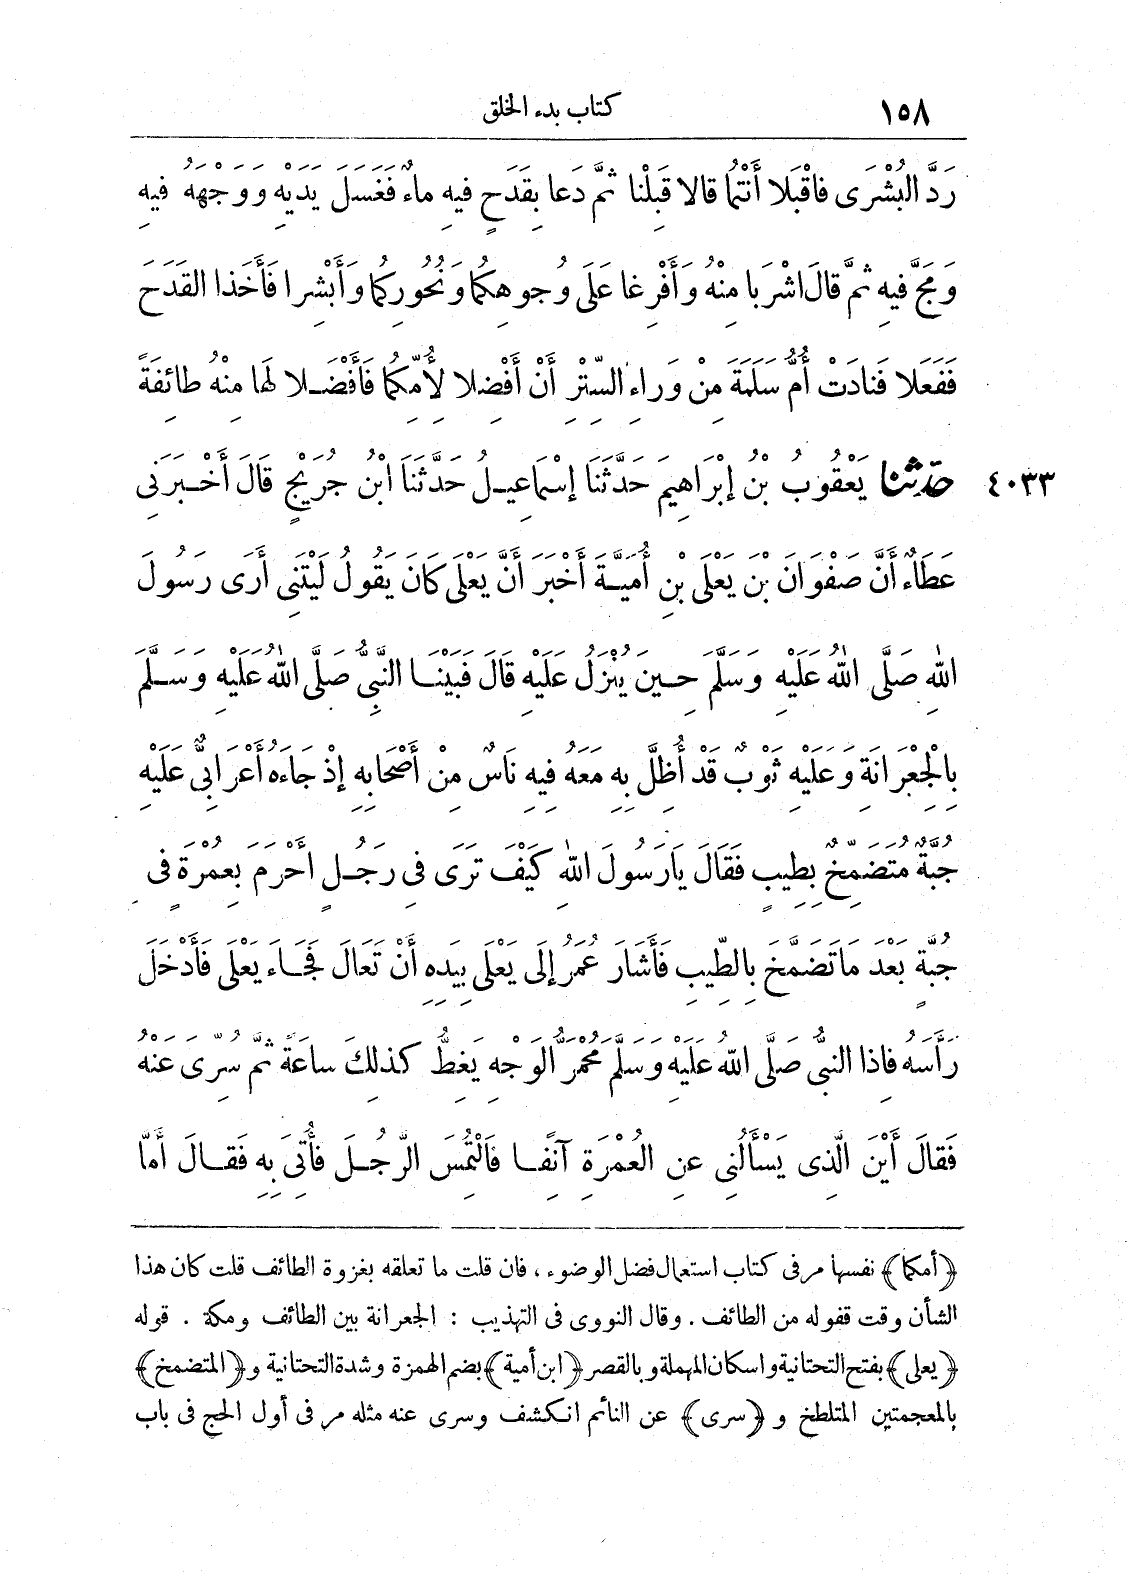 ١٥٨ كتاب بدء الخلق
رَدَّ الْبُشْرَى فَاقْبَلَا أَنْتُمَا قالا قَبِلْنا ثُمَّ دَعا بِقَدَحٍ فيهِ ماءٌ فَغَسَلَ يَدَيْهِ وَوَجْهَهُ فيهِ
وَمَجَّ فيهِ ثُمَّ قالَ اشْرَبا مِنْهُ وَأَفْرِغا عَلَى وُجوهِكُما وَنُحُورِكُما وَأَبْشِرا فَأَخَذا القَدَحَ
فَفَعَلا فَنادَتْ أُمُّ سَلَمَةَ مِنْ وَراءِ السِّتْرِ أَنْ أَفْضِلا لِأُمِّكُما فَأَفْضَلا لَها مِنْهُ طائفَةً
٤٠٣٣ حَدَّثَنَا يَعْقُوبُ بْنُ إِبْرَاهِيمَ حَدَّثَنَا إِسْمَاعِيلُ حَدَّثَنَا ابْنُ جُرَيْجٍ قَالَ أَخْبَرَنى
عَطَاءٌ أَنَّ صَفْوَانَ بْنَ يَعْلَى بْنِ أُمَيَّةَ أَخْبَرَ أَنَّ يَعْلَى كَانَ يَقُولُ لَيْتَنِى أَرَى رَسُولَ
اللهِ صَلَّى اللهُ عَلَيْهِ وَسَلَّمَ حِينَ يُنْزَلُ عَلَيْهِ قَالَ فَبَيْنَا النَّبِىُّ صَلَّى اللهُ عَلَيْهِ وَسَلَّمَ
بِالْجِعْرَانَةِ وَعَلَيْهِ ثَوْبٌ قَدْ أُظِلَّ بِهِ مَعَهُ فِيهِ نَاسٌ مِنْ أَصْحَابِهِ إِذْ جَاءَهُ أَعْرَابِىٌّ عَلَيْهِ
جُبَّةٌ مُتَضَمِّخٌ بِطِيبٍ فَقَالَ يَارَسُولَ اللهِ كَيْفَ تَرَى فِى رَجُلٍ أَحْرَمَ بِعُمْرَةٍ فِى
جُبَّةٍ بَعْدَ مَا تَضَمَّخَ بِالطِّيبِ فَأَشَارَ عُمَرُ إِلَى يَعْلَى بِيَدِهِ أَنْ تَعَالَ فَجَاءَ يَعْلَى فَأَدْخَلَ
رَأْسَهُ فَاِذا النبىُّ صَلَّى اللهُ عَلَيْهِ وَسَلَّمَ مُحْمَرُّ الْوَجْهِ يَغِطُّ كَذلِكَ ساعَةً ثُمَّ سُرِّىَ عَنْهُ
فَقَالَ أَيْنَ الَّذِى يَسْأَلُنِى عَنِ الْعُمْرَةِ آنِفًا فَالْتُمِسَ الرَّجُلَ فَأُتِىَ بِهِ فَقَالَ أَمَّا
﴿أمكما﴾ نفسها مر فى كتاب استعمال فضل الوضوء ، فان قلت ما تعلقه بغزوة الطائف قلت كان هذا
الشأن وقت قفوله من الطائف . وقال النووى فى التهذيب : الجعرانة بين الطائف ومكة . قوله
﴿يعلى﴾ بفتح التحتانية واسكان المهملة وبالقصر ﴿ابن أمية﴾ بضم الهمزة وشدة التحتانية و ﴿المتضمخ﴾
بالمعجمتين المتلطخ و ﴿سرى﴾ عن النائم انكشف وسرى عنه مثله مر فى أول الحج فى باب